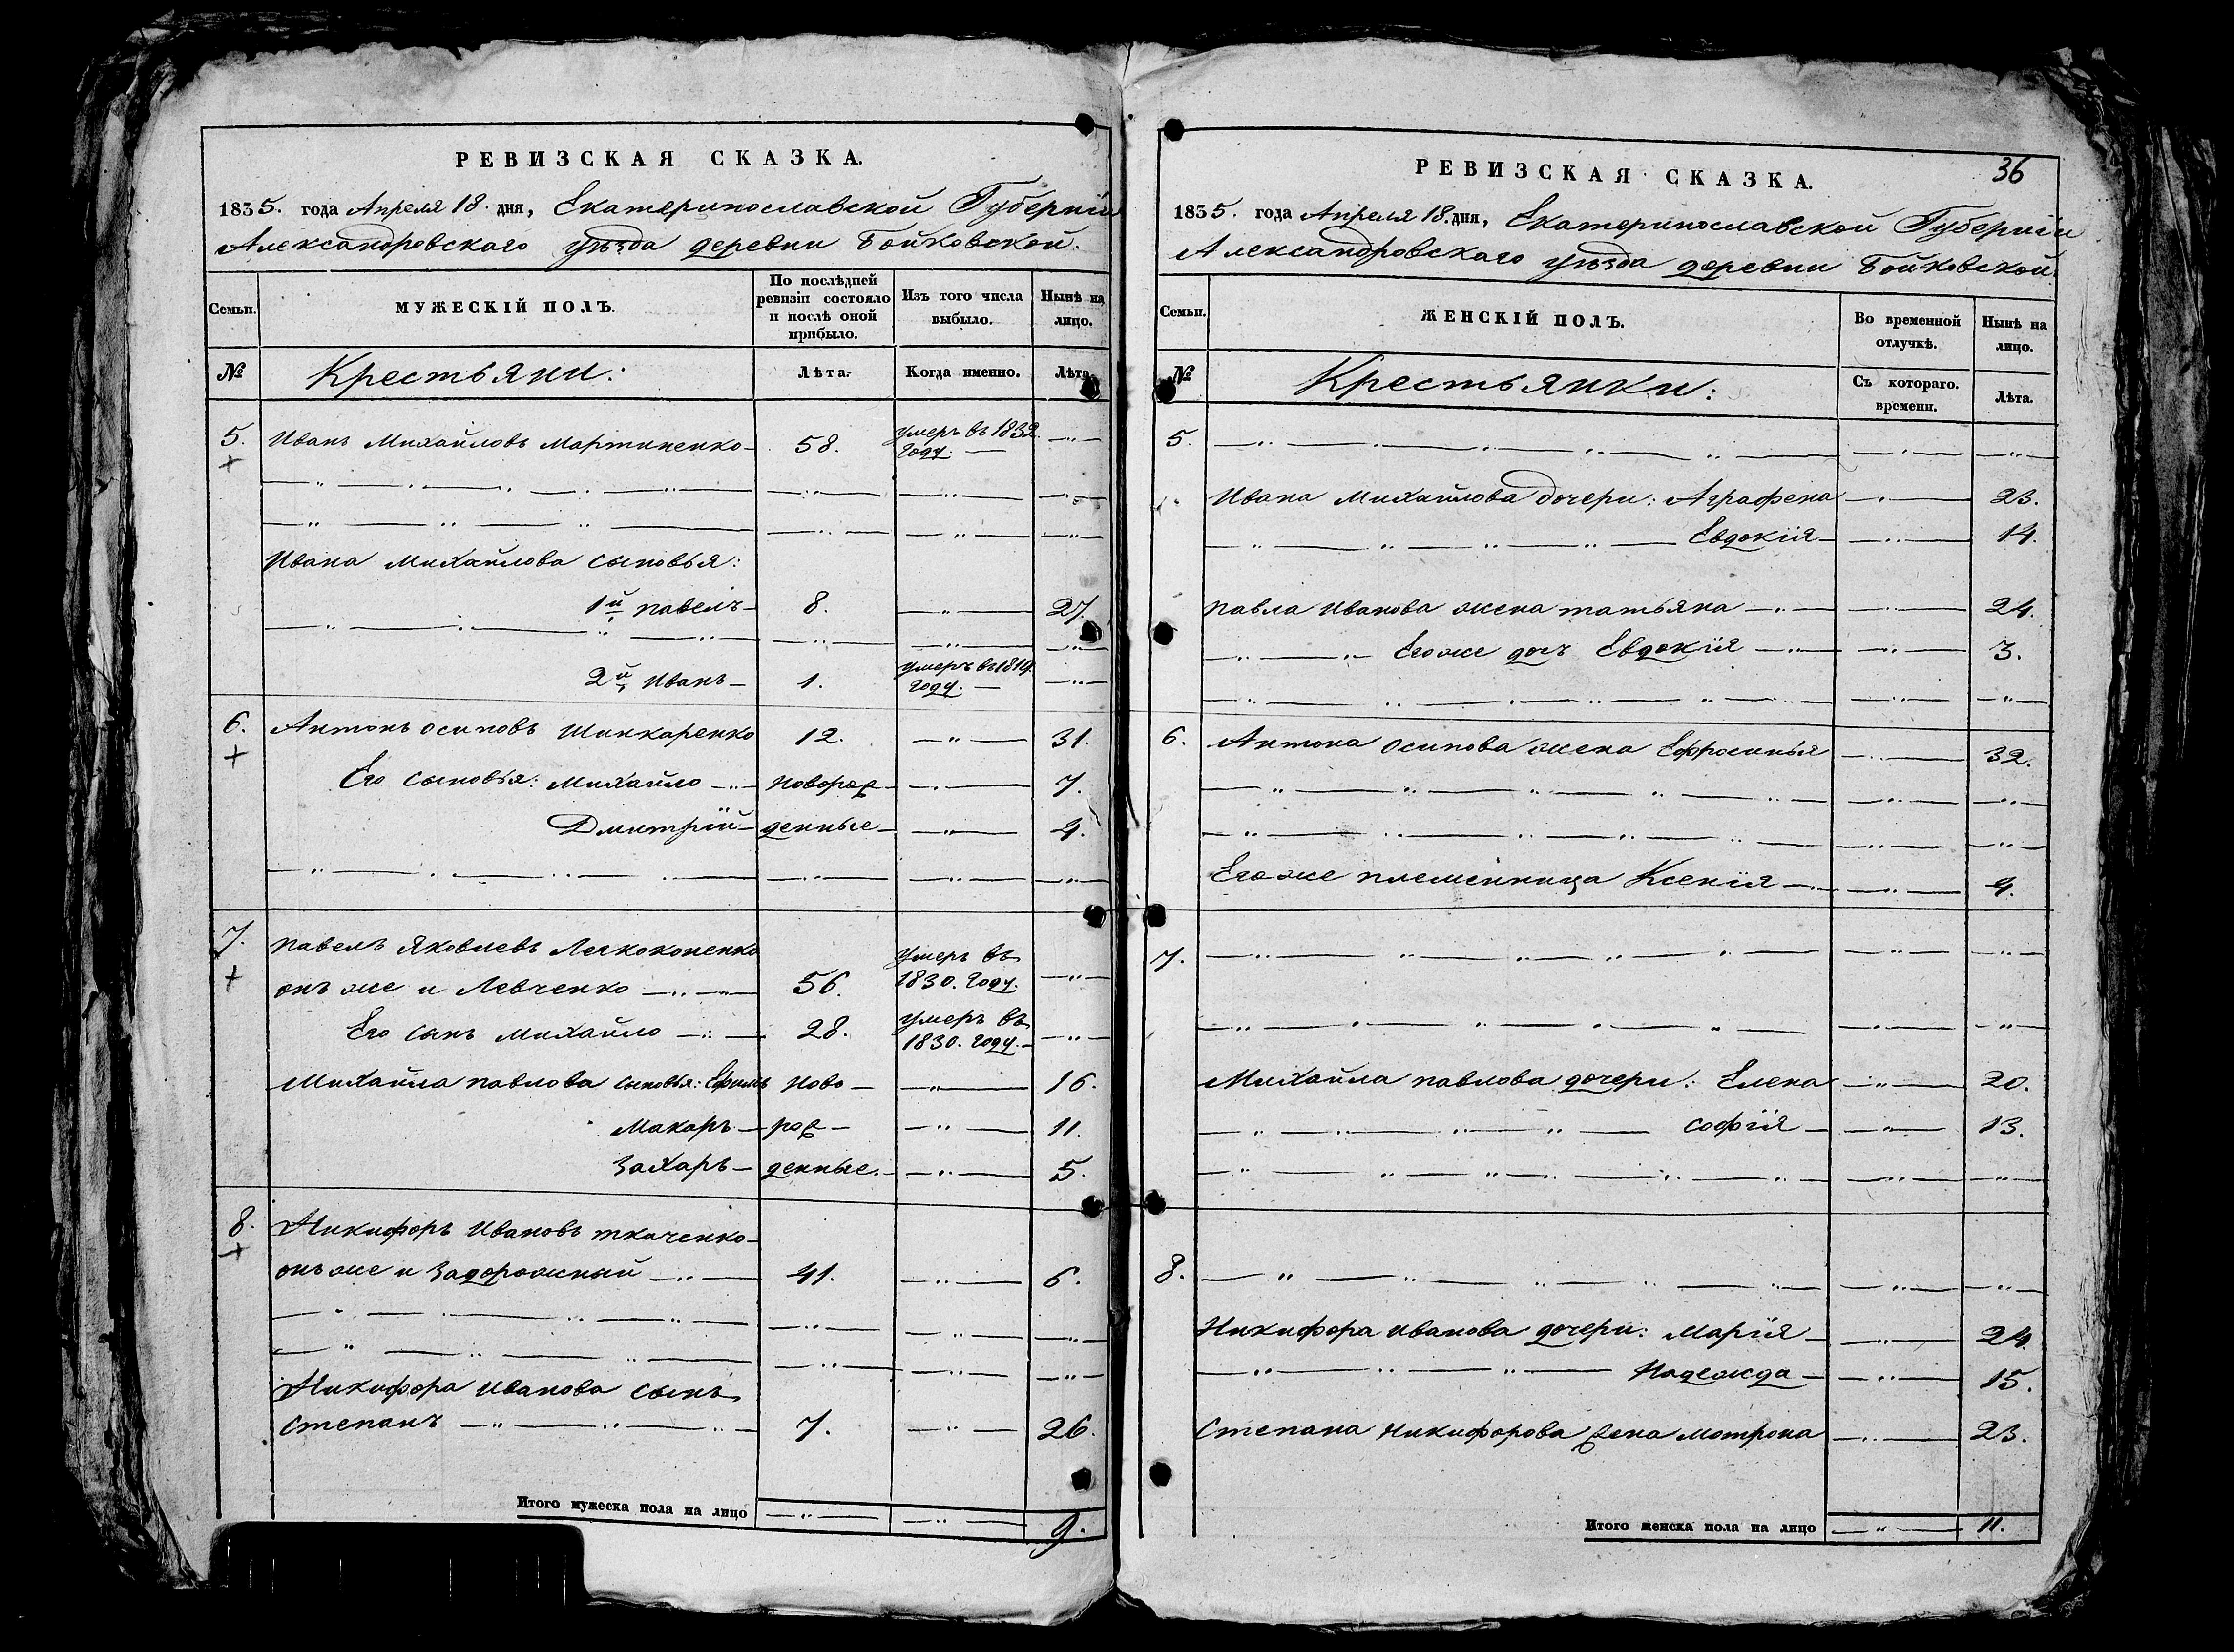 РЕВИЗСКАЯ СКАЗКА.
1835. года Апреля 18. дня, Екатеринославской Губерніи
Александровскаго уѣзда деревни Бойковской.
Семьи. МУЖЕСКІЙ ПОЛЪ. По послѣдней ревизіи состояло и послѣ оной прибыло. Изъ того числа выбыло. Нынѣ на лицо.
№ Крестьяни: Лѣта. Когда именно. Лѣта.
5. Иванъ Михайловъ Мартиненко 58. умеръ въ 1832. году.
Ивана Михайлова сыновья:
1й, павелъ 8. 27.
2й, Иванъ 1. умеръ въ 1819. году.
6. Антонъ осиповъ Шинкаренко 12. 31.
Его сыновья: Михайло новорож 7.
Дмитрій денные 4.
7. павелъ Яковлевъ Легкоконенко
онъ же и Левченко 56. умеръ въ 1830. году.
Его сынъ Михайло 28. умеръ въ 1830. году.
Михайла павлова сыновья: Ефимъ ново 16.
Макаръ рож 11.
Захаръ денные. 5.
8. Никифоръ Ивановъ ткаченко
онъ же и Задорожный 41. 6.
Никифора Иванова сынъ
степанъ 7. 26.
Итого мужеска пола на лицо 9.
36
РЕВИЗСКАЯ СКАЗКА.
1835. года Апреля 18. дня, Екатеринославской Губерніи
Александровскаго уѣзда деревни Бойковской.
Семьи. ЖЕНСКІЙ ПОЛЪ. Во временной отлучкѣ. Нынѣ на лицо.
№ Крестьянки: Съ котораго. времени. Лѣта.
5.
Ивана Михайлова дочери: Аграфена 23.
Евдокія 14.
павла Иванова жена татьяна 24.
Его же дочь Евдокія 3.
6. Антона осипова жена Ефросинья 32.
Его же племянница Ксенія 4.
7.
Михайла павлова дочери: Елена 20.
софія 13.
8.
Никифора иванова дочери: Марія 24.
Надежда 15.
степана никифорова жена мотрона 23.
Итого женска пола на лицо 11.